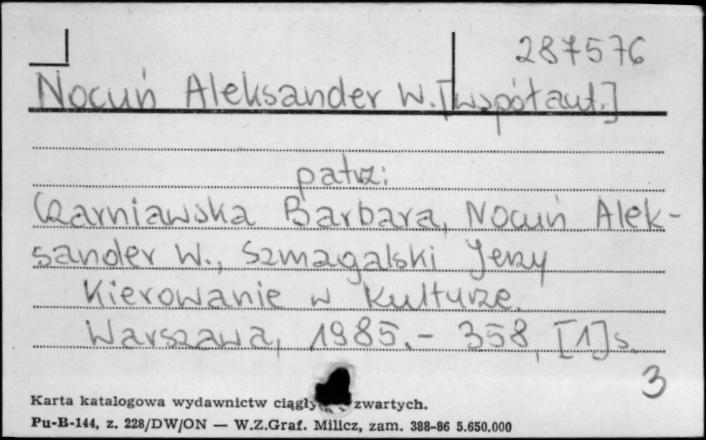 287576
Nocuń Aleksander W. [współaut.]
patrz:
Czarniawska Barbara, Nocuń Alek-
sander W., Szmagalski Jerzy
Kierowanie w kulturze.
Warszawa, 1985. - 358, [1] s.
3
Karta katalogowa wydawnictw ciągły zwartych.
Pu-B-144, z. 228/DW/ON — W.Z.Graf. Milicz, zam. 388-86 5.650.000